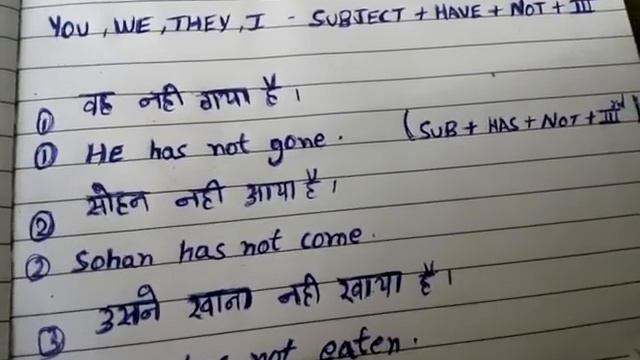 YOU, WE, THEY, I - SUBJECT + HAVE + NOT + III
① वह नही गया है।
① He has not gone. (SUB + HAS + NOT + IIIrd)
② सोहन नही आया है।
② Sohan has not come.
③ उसने खाना नही खाया है।
not eaten.